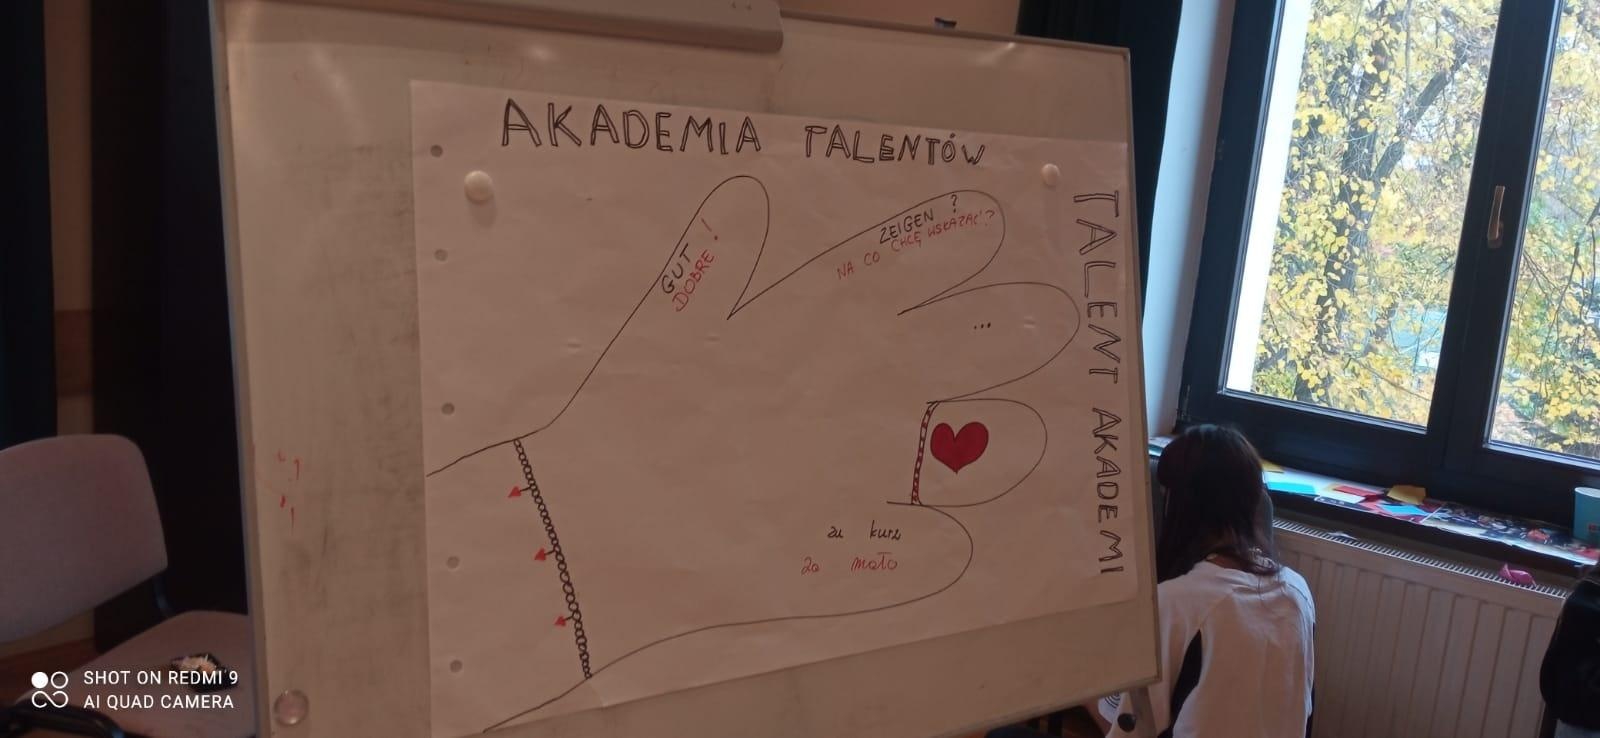 AKADEMIA TALENTÓW
TALENT AKADEMI
GUT !
DOBRE
ZEIGEN ?
NA CO CHCĘ WSKAZAĆ?
...
zu kurz
za mało
SHOT ON REDMI 9
AI QUAD CAMERA